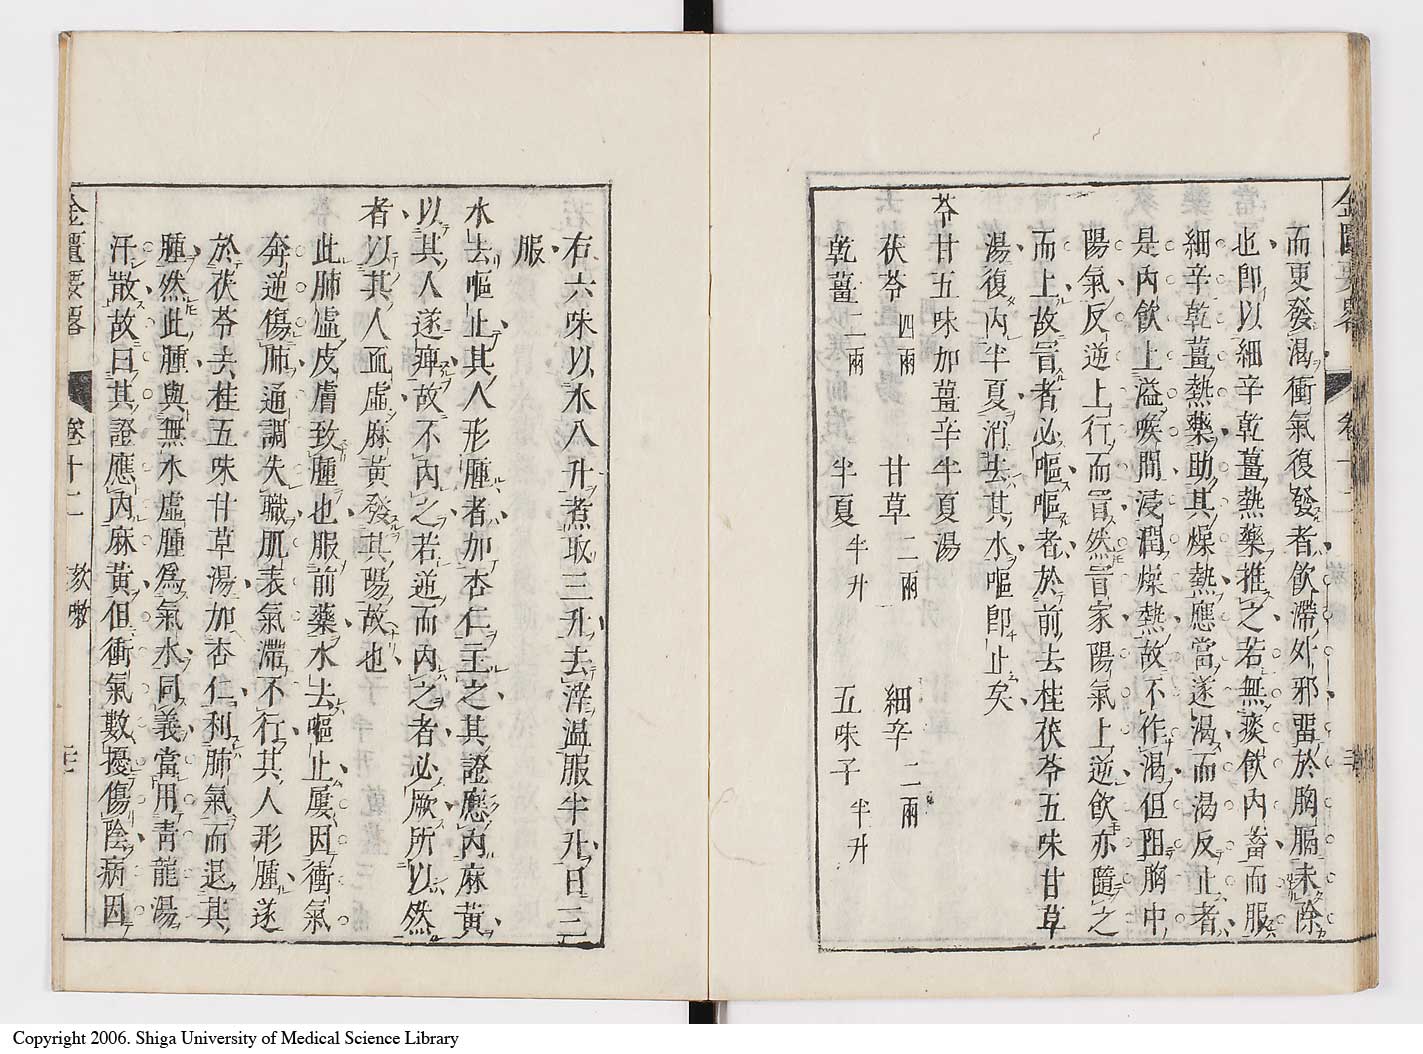 而更發渴衝氣復發者飲滯外邪畱於胸膈未除
也卽以細辛乾薑熱藥推之若無痰飲內畜而服
細辛乾薑熱藥助其燥熱應當遂渴而渴反止者
是內飲上溢喉間浸潤燥熱故不作渴但阻胸中
陽氣反逆上行而冒然冒家陽氣上逆飲亦隨之
而上故冒者必嘔嘔者於前去桂茯苓五味甘草
湯復內半夏消去其水嘔卽止矣
苓甘五味加薑辛半夏湯
茯苓 四兩 甘草 二兩 細辛 二兩
乾薑 二兩 半夏 半升 五味子 半升
金匱要畧 卷十二 欬嗽
右六味以水八升煮取三升去滓溫服半升日三
服
水去嘔止其人形腫者加杏仁主之其證應內麻黃
以其人遂痺故不內之若逆而內之者必厥所以然
者以其人血虛麻黃發其陽故也
此肺虛皮膚致腫也服前藥水去嘔止屢因衝氣
奔逆傷肺通調失職肌表氣滯不行其人形腫遂
於茯苓去桂五味甘草湯加杏仁利肺氣而退其
腫然此腫與無水虛腫爲氣水同義當用靑龍湯
汗散故曰其證應內麻黃但衝氣數擾傷陰病因
金匱要畧 卷十二 欬嗽
Copyright 2006. Shiga University of Medical Science Library